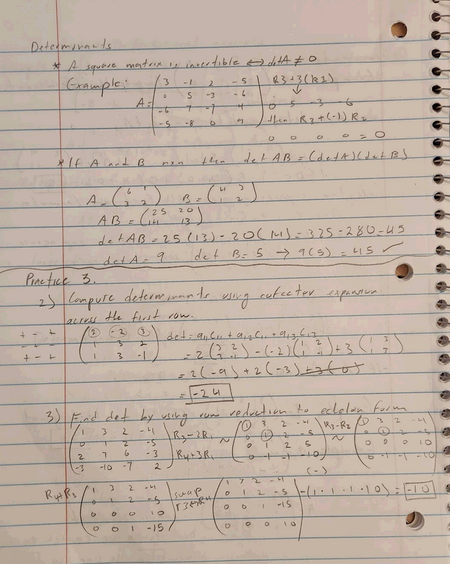 Determinants
* A square matrix is invertible ⟺ det A ≠ 0
Example:
A = ( 3 -1 2 -5
0 5 -3 -6
-6 7 -7 4
-5 -8 0 9 )
R3+2(R1)
↓
0 5 -3 -6
then R3+(-1)R2
0 0 0 0 = 0
* If A and B nxn then det AB = (det A)(det B)
A = ( 6 1
3 2 ) B = ( 4 3
1 2 )
AB = ( 25 20
14 13 )
det AB = 25(13) - 20(14) = 325 - 280 = 45
det A = 9 det B = 5 → 9(5) = 45 ✓
Practice 3.
2) Compute determinants using cofactor expansion
across the first row.
+ - +
- + -
+ - +
( 2 -2 3
3 2
1 3 -1 )
= 2(-9) + 2(-3)
= -24
3) Find det by using row reduction to echelon form
( 1 3 2 -4
0 1 2 -5
2 7 6 -3
-3 -10 -7 2 )
R3-2R1
R4+3R1
~
( 1 3 2 -4
0 1 2 -5
0 1 2 5
0 -1 -1 -10 )
R3-R2
~
( 1 3 2 -4
0 1 2 -5
0 0 0 10
0 -1 -1 -10 )
(-)
R4+R2
( 1 3 2 -4
0 1 2 -5
0 0 0 10
0 0 1 -15 )
swap
r3↔R4
( 1 3 2 -4
0 1 2 -5
0 0 1 -15
0 0 0 10 )
-(1·1·1·10) = -10